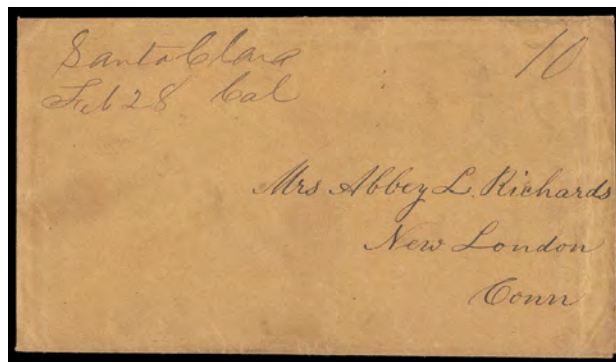 Santa Clara
Feb 28 Cal
10
Mrs Abbey L. Richards
New London
Conn